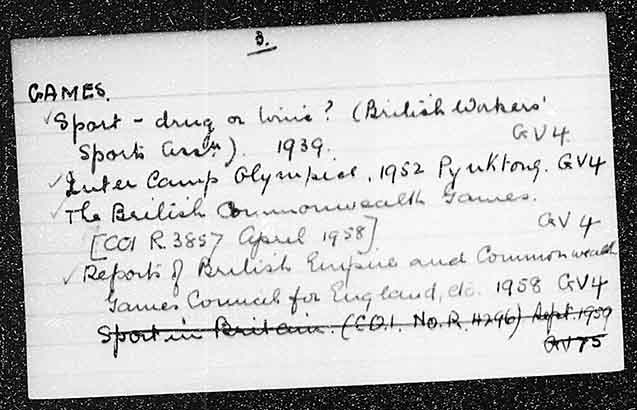 3.
GAMES.
✓Sport - drug or tonic? (British Workers'
Sports Assn). 1939. GV4
✓Inter Camp Olympics, 1952 Pyuktong. GV4
✓The British Commonwealth Games.
[COI R.3857 April 1958] GV4
✓Reports of British Empire and Commonwealth
Games Council for England, etc. 1958 GV4
Sport in Britain. (C.O.I. No. R. 4296) Sept 1959
GV75